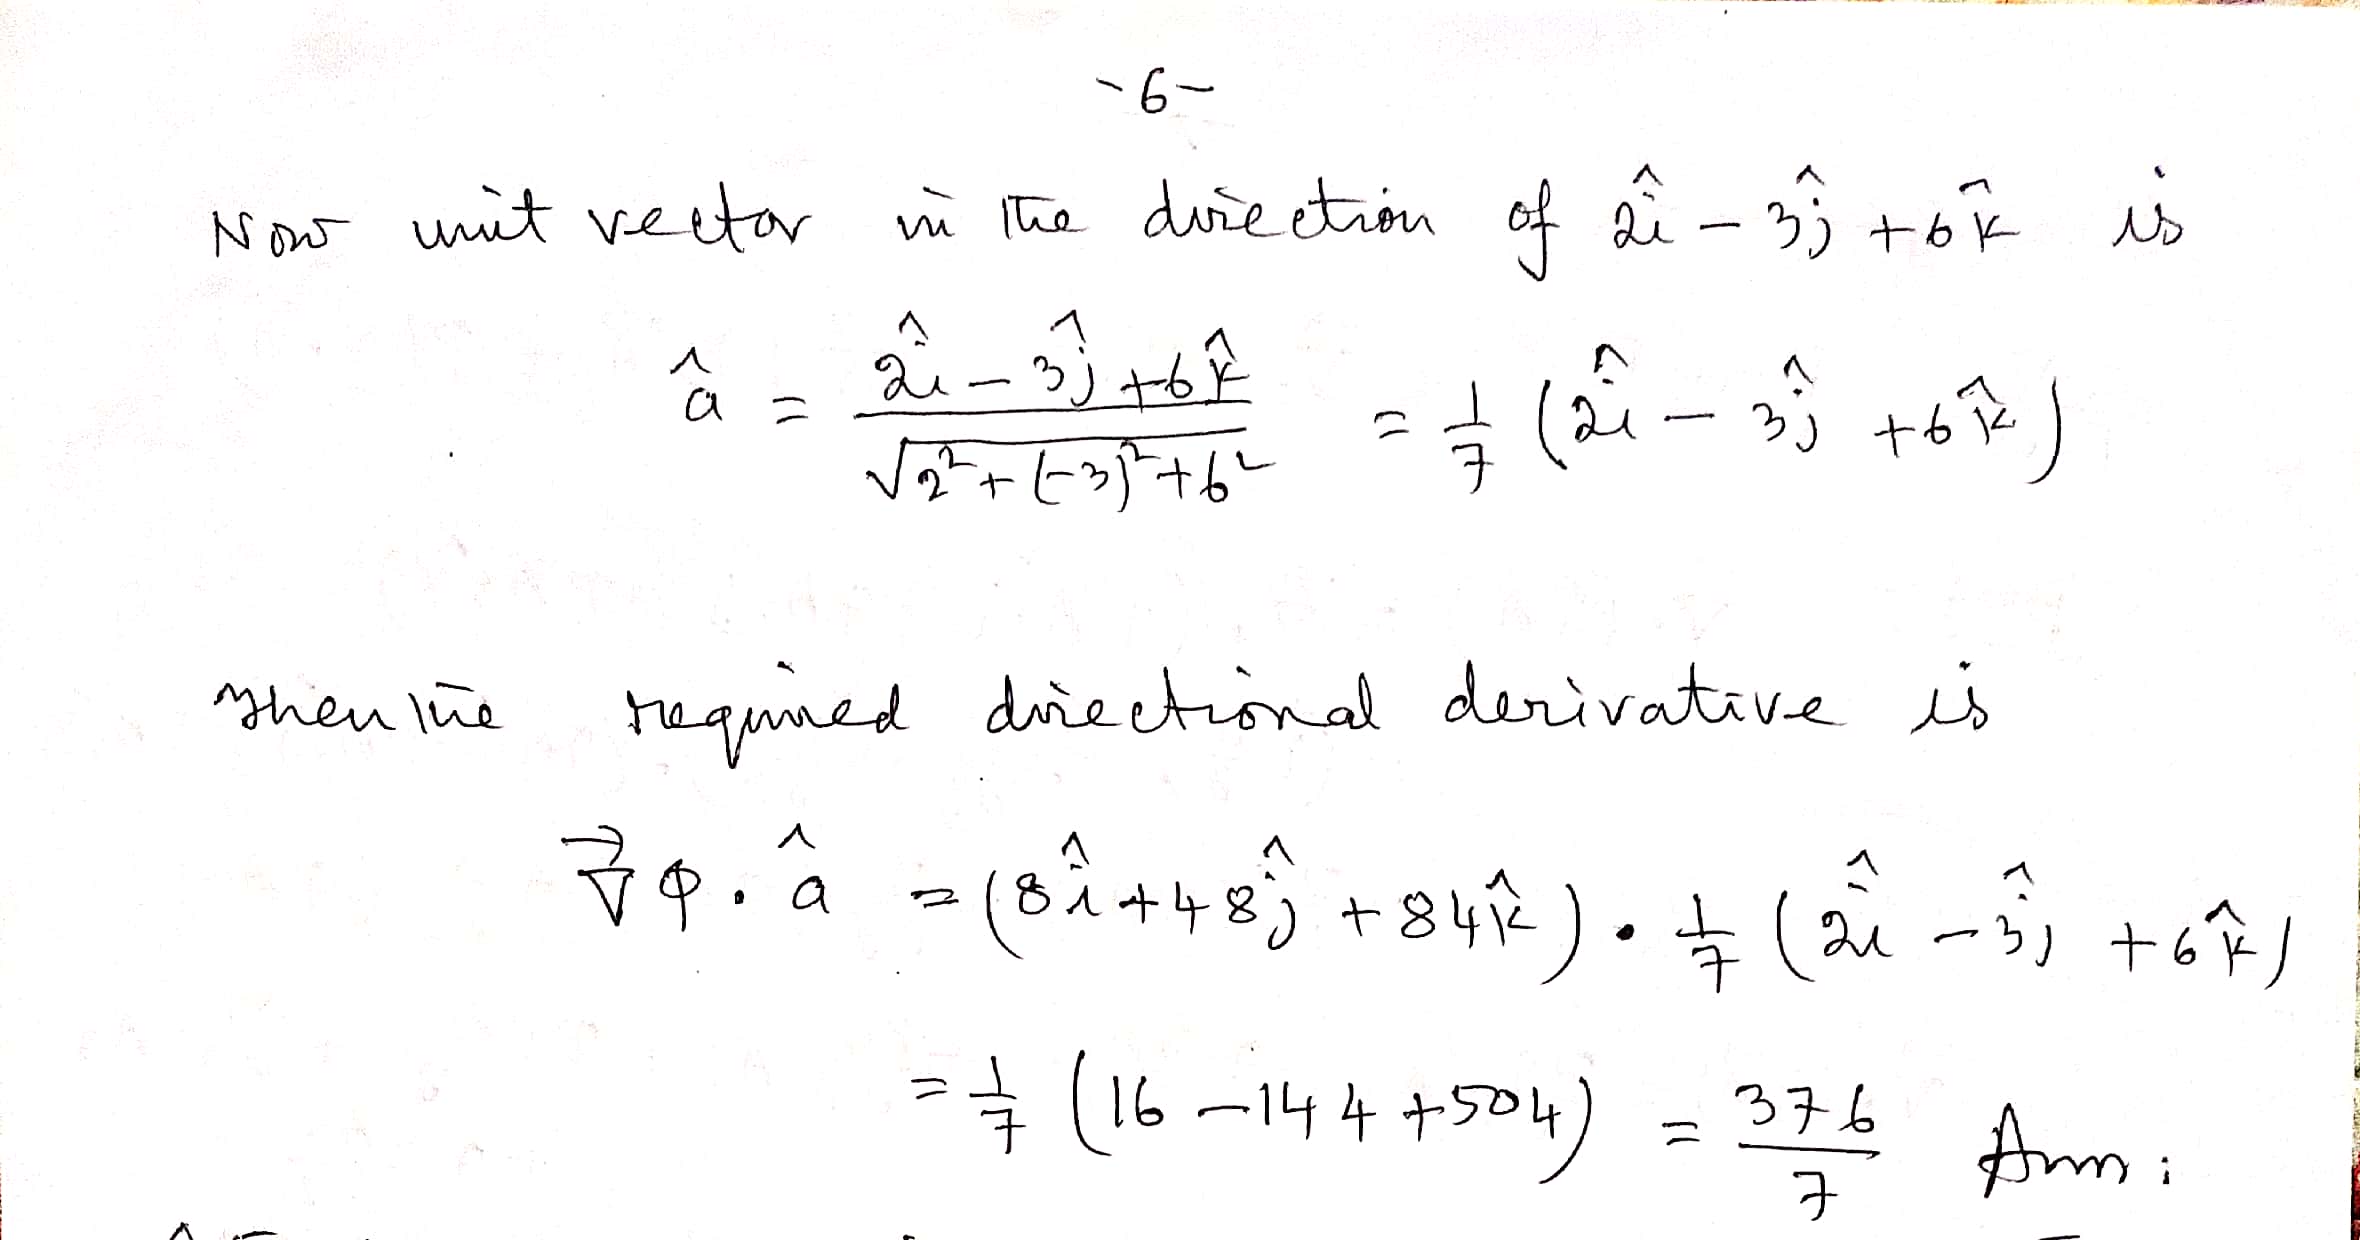 -6-
Now unit vector in the direction of 2î - 3ĵ + 6k̂ is
â = (2î - 3ĵ + 6k̂) / √(2² + (-3)² + 6²) = 1/7 (2î - 3ĵ + 6k̂)
Then the required directional derivative is
∇⃗φ . â = (8î + 48ĵ + 84k̂) . 1/7 (2î - 3ĵ + 6k̂)
= 1/7 (16 - 144 + 504) = 376/7 Ans: